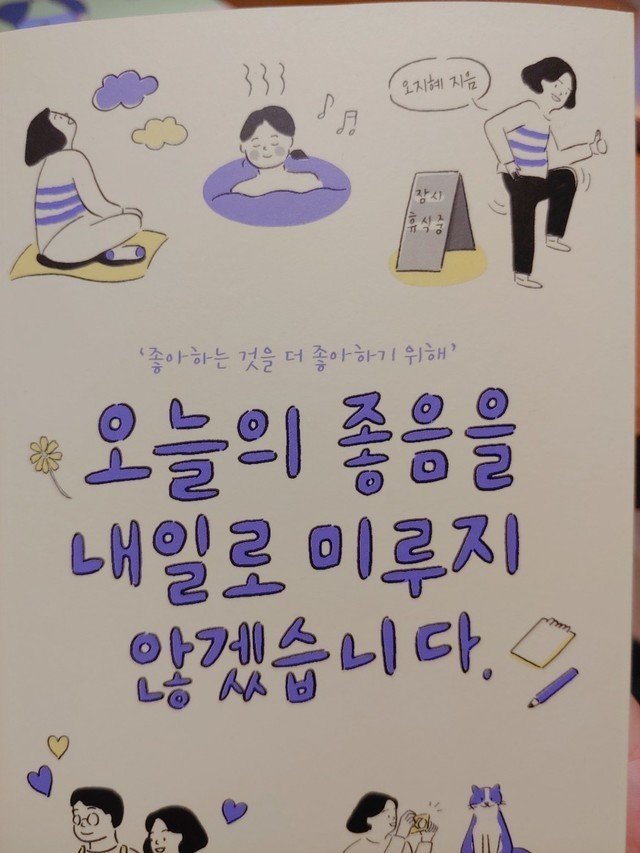 오지혜 지음
잠시
휴식중
‘좋아하는 것을 더 좋아하기 위해’
오늘의 좋음을
내일로 미루지
않겠습니다.